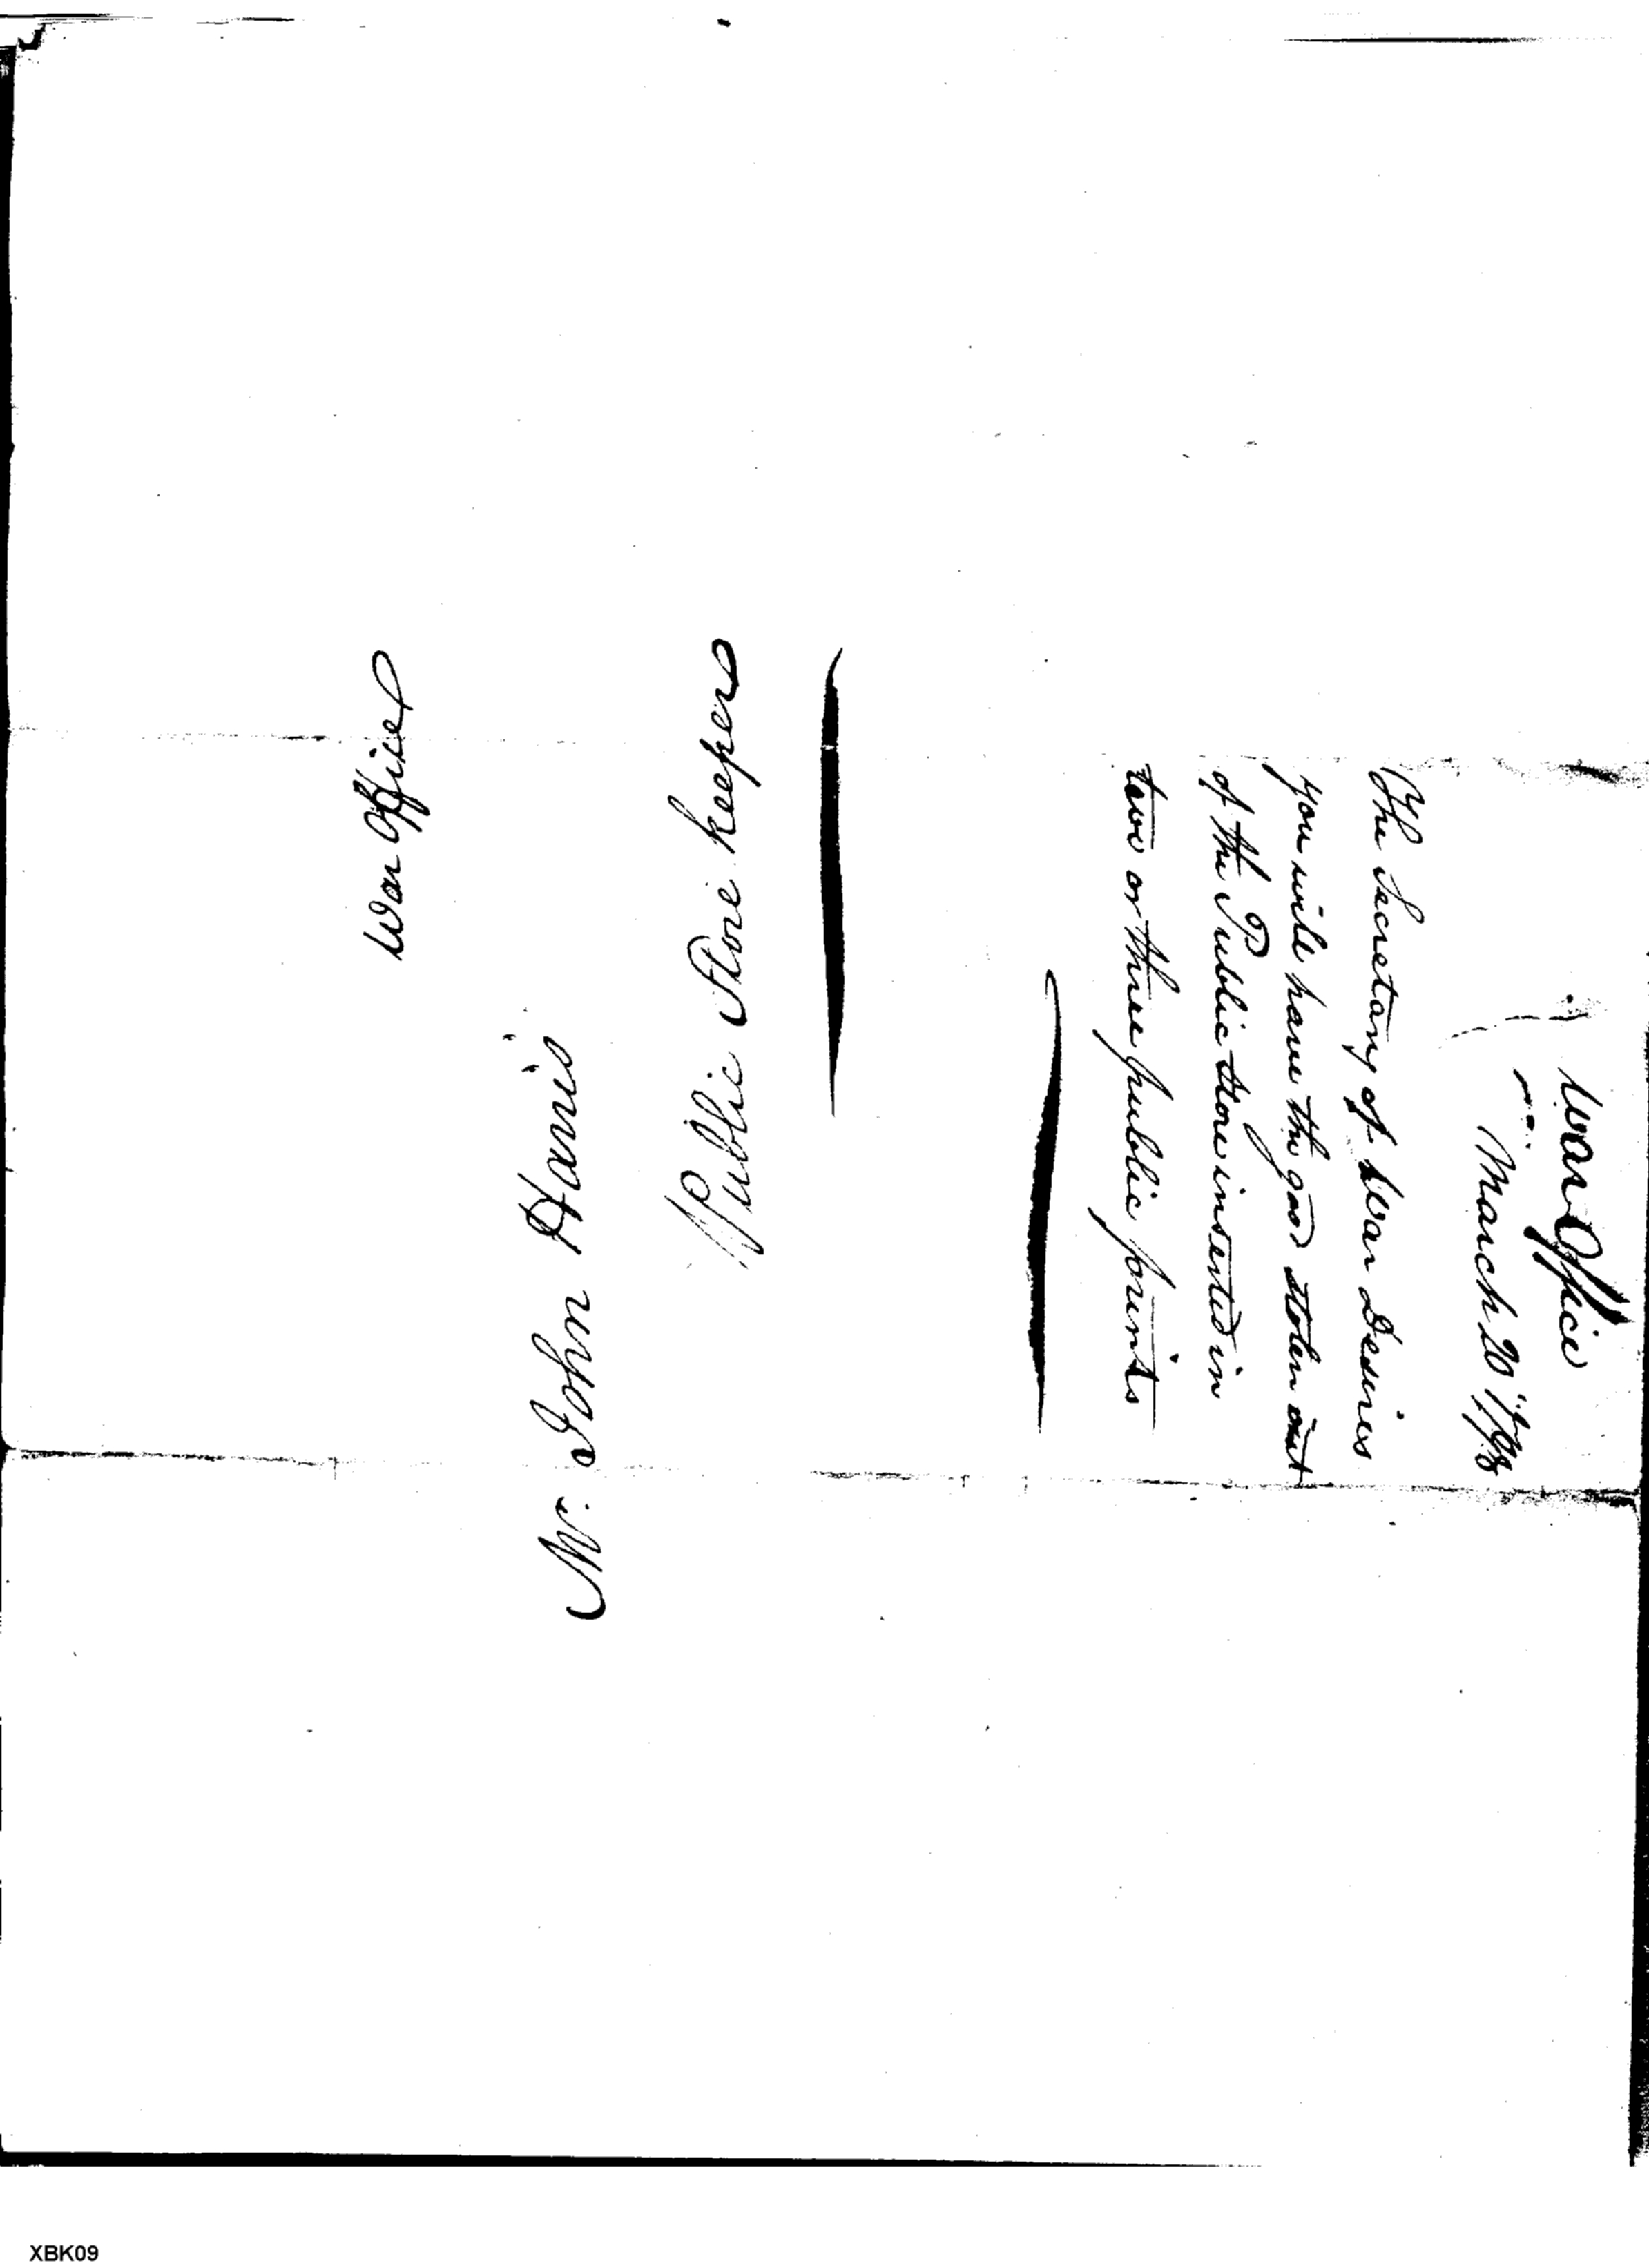 War Office
Mr. John Harris
Public Store keeper
War Office
March 20 1798
The Secretary of War desires
you will have the good stolen out
of the Public Store inserted in
two or three public prints
XBK09